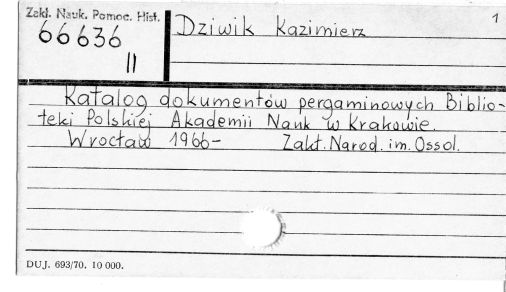 Zakł. Nauk. Pomoc. Hist.
66636
II
Dziwik Kazimierz
1
Katalog dokumentów pergaminowych Biblio-
teki Polskiej Akademii Nauk w Krakowie.
Wrocław 1966- Zakł. Narod. im. Ossol.
DUJ. 693/70. 10 000.